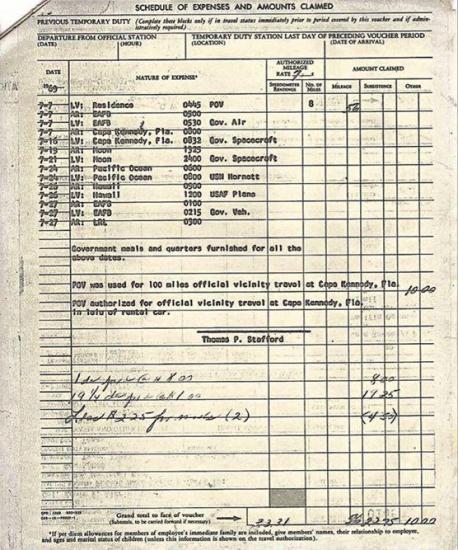 SCHEDULE OF EXPENSES AND AMOUNTS CLAIMED
PREVIOUS TEMPORARY DUTY (Complete these blocks only if in travel status immediately prior to period covered by this voucher and if administratively required)
DEPARTURE FROM OFFICIAL STATION
(DATE) (HOUR)
TEMPORARY DUTY STATION
(LOCATION)
LAST DAY OF PRECEDING VOUCHER PERIOD
(DATE OF ARRIVAL)
DATE
1969
NATURE OF EXPENSE*
AUTHORIZED MILEAGE
RATE 7
SPEEDOMETER READINGS
NO. OF MILES
AMOUNT CLAIMED
MILEAGE SUBSISTENCE OTHER
7-7 LV: Residence 0445 POV 8 56
7-7 AR: EAFB 0500
7-7 LV: EAFB 0530 Gov. Air
7-7 AR: Cape Kennedy, Fla. 0800
7-16 LV: Cape Kennedy, Fla. 0832 Gov. Spacecraft
7-19 AR: Moon 1325
7-21 LV: Moon 2400 Gov. Spacecraft
7-24 AR: Pacific Ocean 0600
7-24 LV: Pacific Ocean 0800 USN Hornett
7-26 AR: Hawaii 0900
7-26 LV: Hawaii 1200 USAF Plane
7-27 AR: EAFB 0100
7-27 LV: EAFB 0215 Gov. Veh.
7-27 AR: 0300
Government meals and quarters furnished for all the
above dates.
POV was used for 100 miles official vicinity travel at Cape Kennedy, Fla. 10.00
POV authorized for official vicinity travel at Cape Kennedy, Fla.
in leiu of rental car.
Thomas P. Stafford
1 8.00 8.00
19 1/4 1.00 19.25
2.25 for meals (2) (4.50)
Grand total to face of voucher
(Subtotals, to be carried forward if necessary)
33.31 56 22.75 10.00
*If per diem allowances for members of employee's immediate family are included, give members' names, their relationship to employee,
and ages and marital status of children (unless this information is shown on the travel authorization).